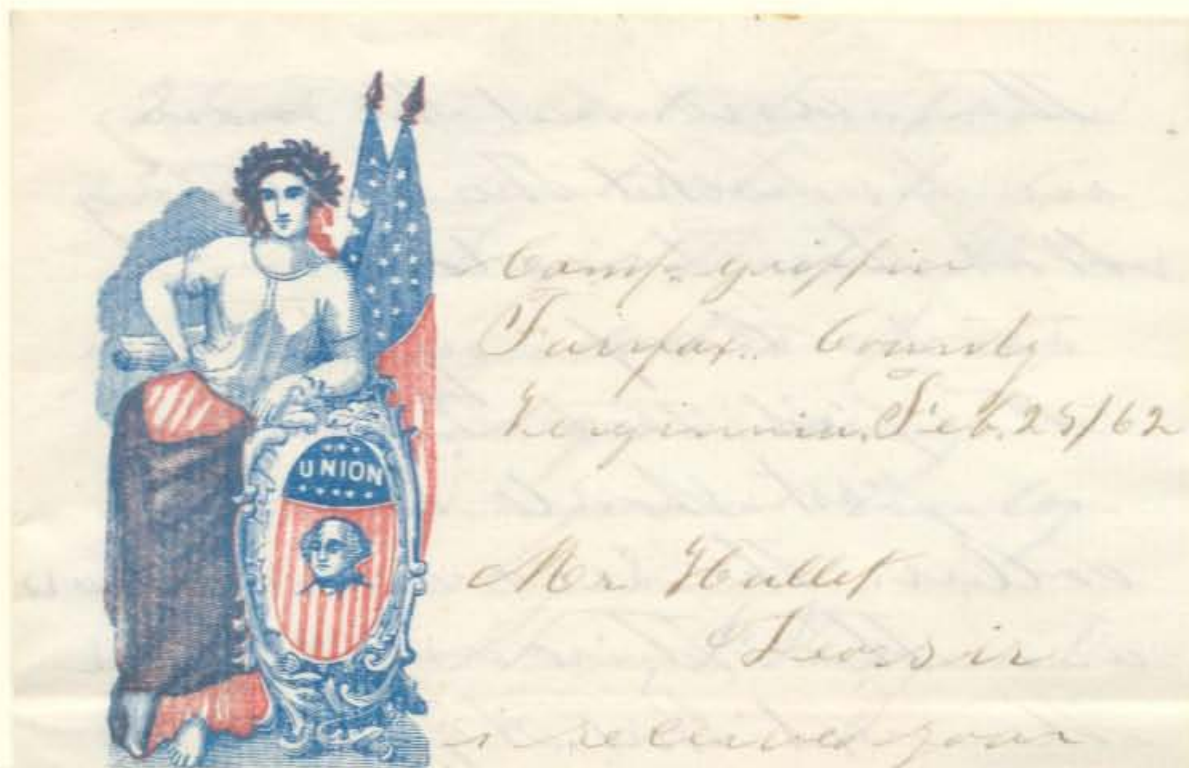 UNION
Camp griffin
Fairfax County
Verginnia, Feb. 25/62
Mr Hullet
Dear sir
i receive your